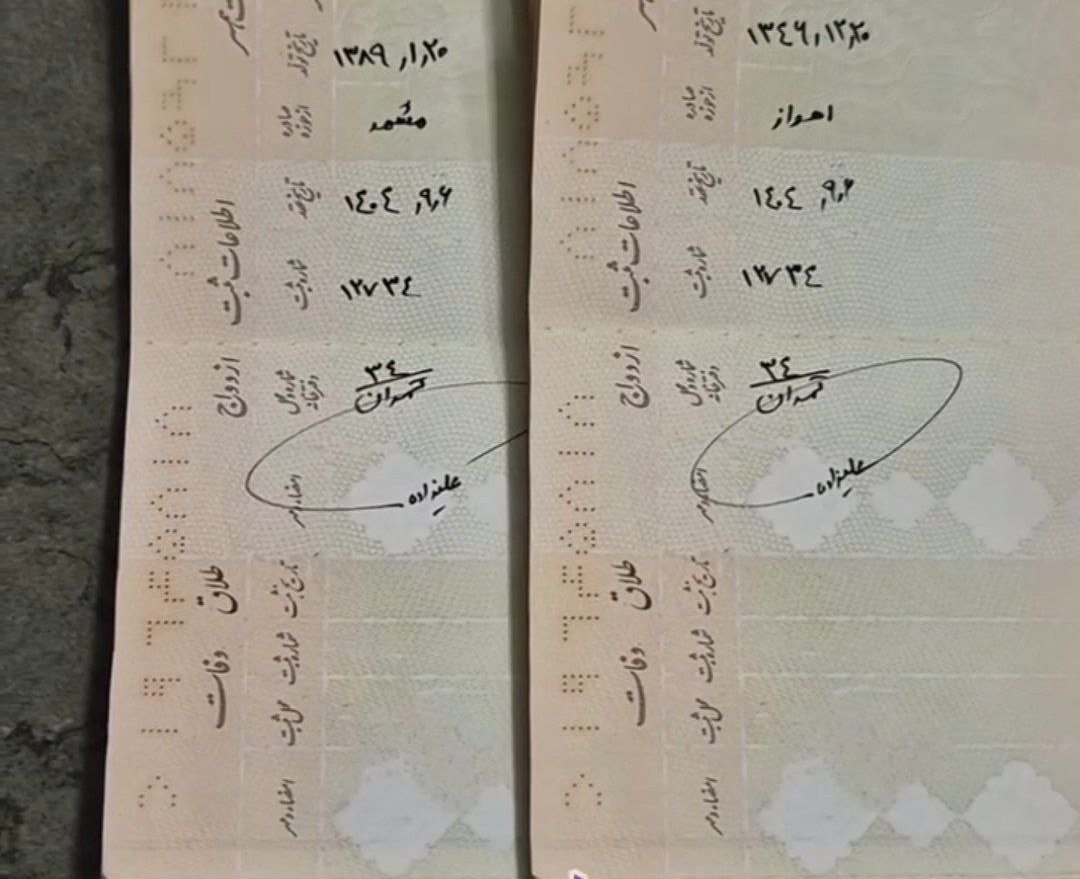 تاریخ تولد ۱۳۸۹,۱,۲۰
صادره از حوزه مشهد
اطلاعات ثبت ازدواج
تاریخ عقد ۱٤۰٤,۹,۶
شماره ثبت ۱۲۷۳٤
شماره و محل دفترخانه ۳٤ تهران
امضاء و مهر علیزاده
طلاق
وفات
تاریخ ثبت
شماره ثبت
محل ثبت
امضاء و مهر
تاریخ تولد ۱۳٤۶,۱۲,۲۰
صادره از حوزه اهواز
اطلاعات ثبت ازدواج
تاریخ عقد ۱٤۰٤,۹,۶
شماره ثبت ۱۲۷۳٤
شماره و محل دفترخانه ۳٤ تهران
امضاء و مهر علیزاده
طلاق
وفات
تاریخ ثبت
شماره ثبت
محل ثبت
امضاء و مهر